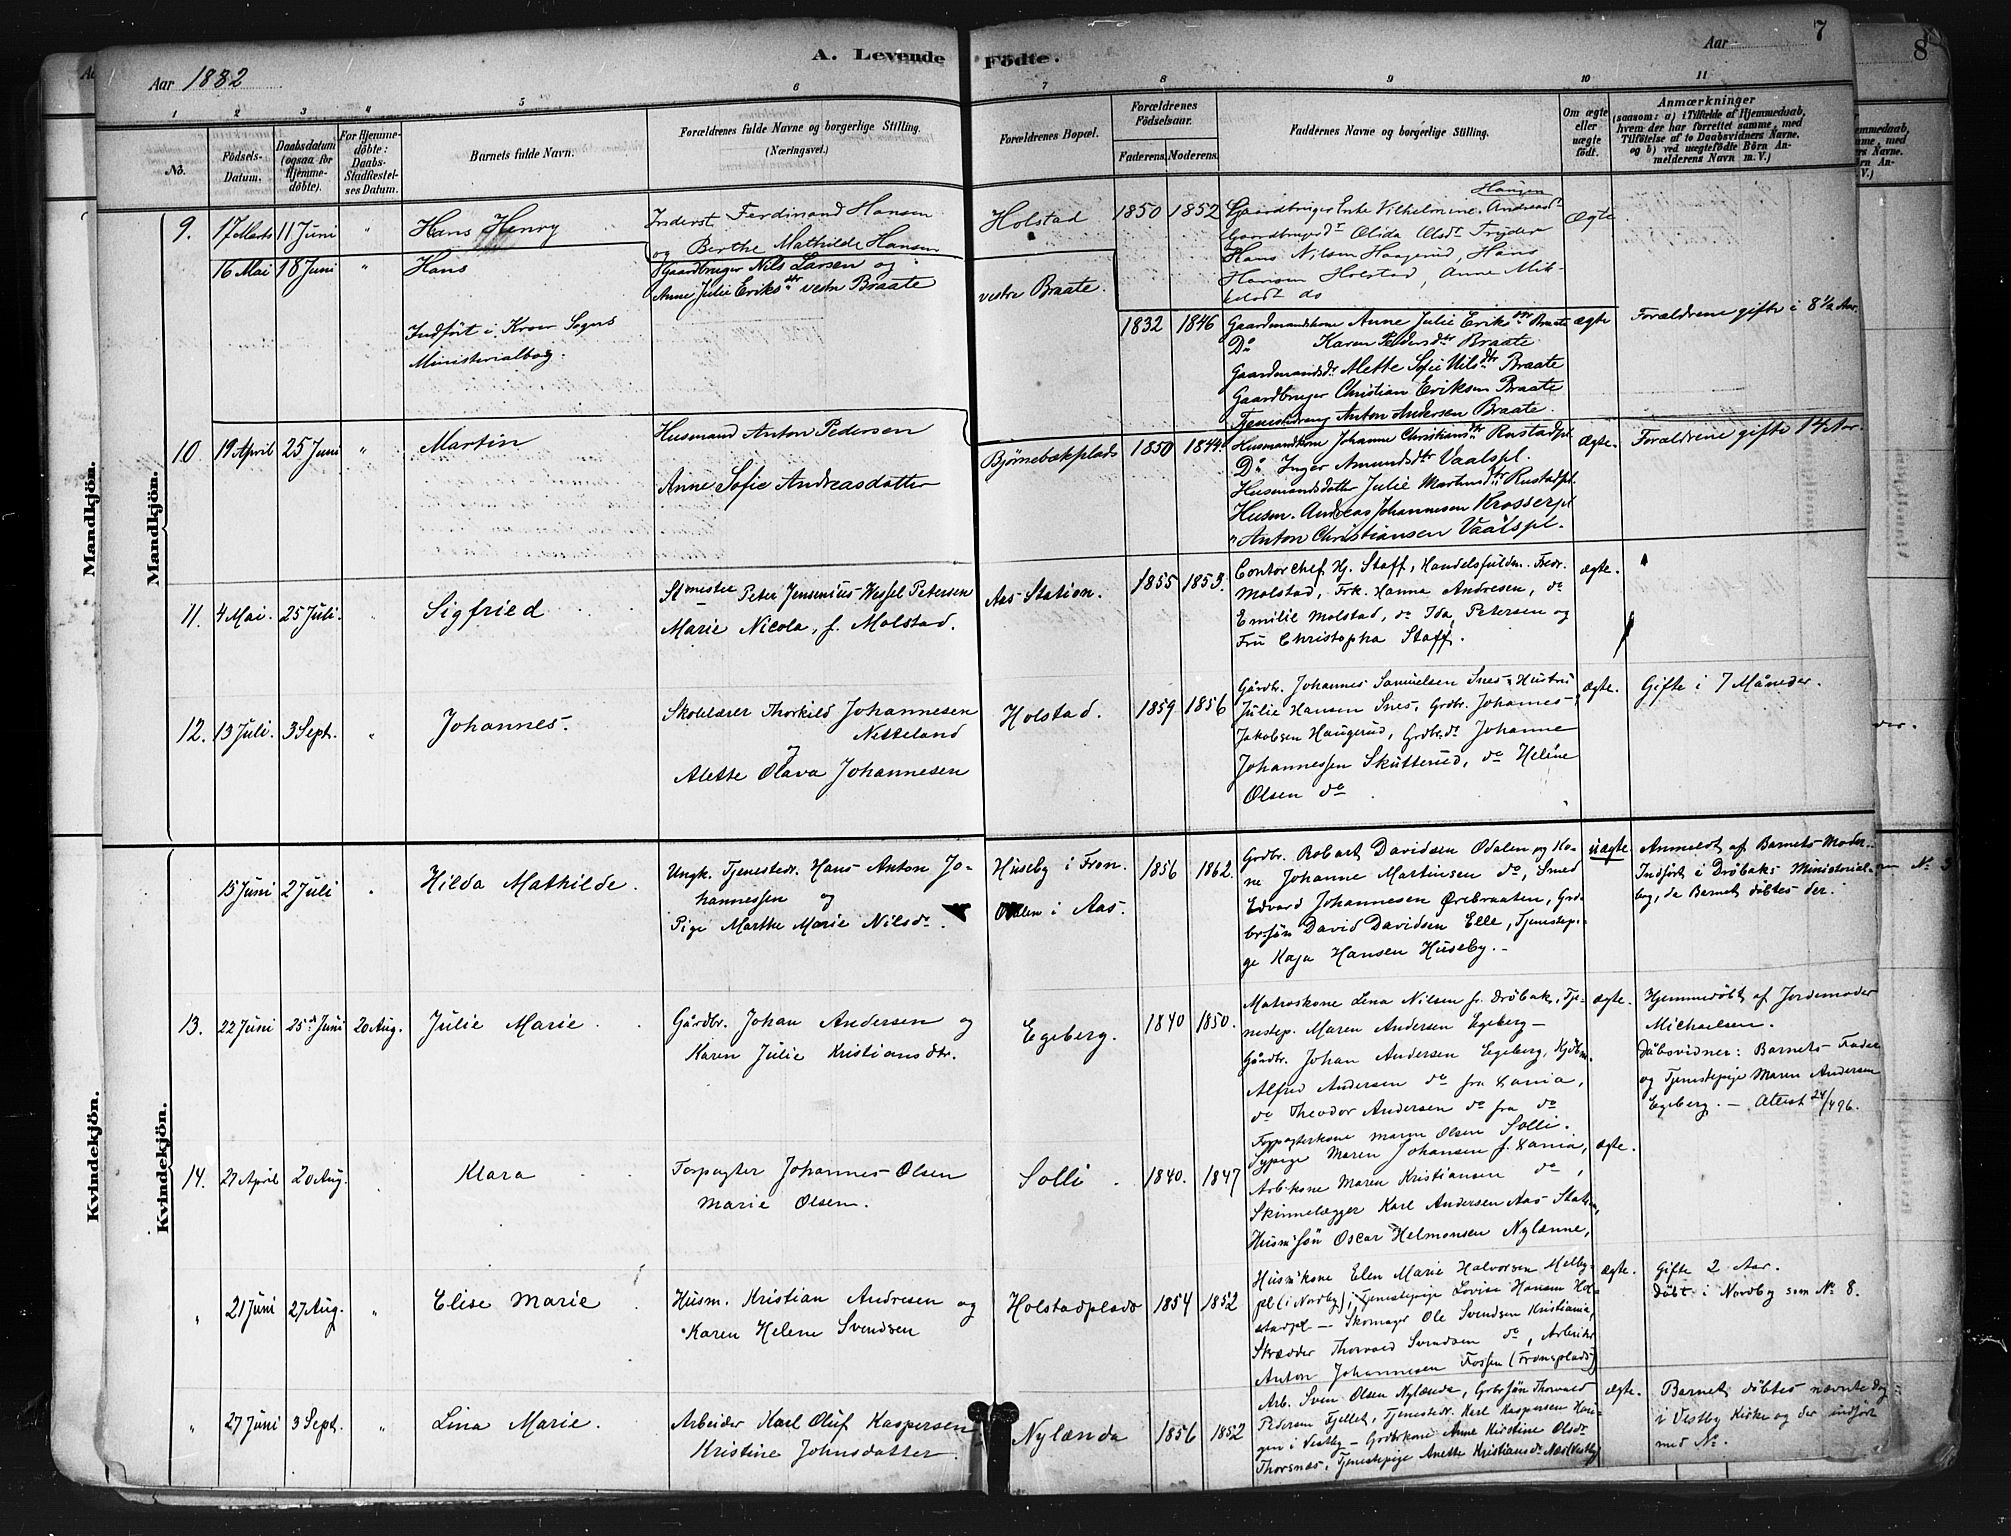 Aar 1882
A. Levende Födte.
Aar
7
8
1 2 3 4 5 6 7 8 9 10 11
No.
Födsels-Datum.
Daabsdatum (ogsaa for Hjemmedöbte).
For Hjemmedöbte: Daabs-Stadfæstelses Datum.
Barnets fulde Navn.
Forældrenes fulde Navne og borgerlige Stilling.
(Næringsvei.)
Forældrenes Bopæl.
Forældrenes Födselsaar.
Faderens. Moderens.
Faddernes Navne og borgerlige Stilling.
Om ægte eller uægte födt.
Anmærkninger
(saasom: a) i Tilfælde af Hjemmedaab,
hvem der har forrettet samme, med
Tilföielse af to Daabsvidners Navne.
og b) ved uægtefödte Börn Anmelderens Navn m. V.)
Mandkjön.
Mandkjön.
9. 17 Marts 11 Juni " Hans Henry
Inderst Ferdinand Hansen
og Berthe Mathilde Hansen
Holstad 1850 1852
Haugen
Gaardbruger Enke Vilhelmine Andreasdr
Gaardbrugerdr Olida Olsdr Frydere
Hans Nilsen Haagerud, Hans
Hansen Holstad, Anne Mikkelsdr do
Ægte
16 Mai 18 Juni " Hans
Indført i Kroer Sogns
Ministerialbog.
Gaardbruger Nils Larsen og
Anne Julie Eriksdtr vestre Braate
vestre Braate. 1832 1846
Gaardmandskone Anne Julie Eriksdtr Braate
Do Karen Pedersdtr Braate
Gaardmandsdr Mette Sofie Nilsdtr Braate
Gaardbruger Christian Eriksen Braate
Tjenestedreng Anton Andersen Braate.
ægte
Forældrene gifte i 8 1/2 Aar.
10. 19 April 25 Juni " Martin
Husmand Anton Pedersen
Anne Sofie Andreasdatter
Bjørnebækplads 1850 1844
Husmandkone Johanne Christiansdtr Rustadpl.
Do Inger Amundsdtr Vaalspl.
Husmandsdatter Julie Martinsdtr Rustadpl.
Husm. Andreas Johannesen Krosserpl
" Anton Christiansen Vaalspl.
Ægte.
Forældrene gifte 14 Aar.
11. 4 Mai. 25 Juli. " Sigfried
Stmester Peter Jensenius Wessel Petersen
Marie Nicola, f. Molstad.
Aas Station. 1855 1853.
Contorchef Hj. Staff, Handelsfuldm. Fredr.
Molstad, Frk. Hanna Andresen, do
Emilie Molstad, do Ida Petersen og
Fru Christopha Staff.
ægte.
12. 13 Juli. 3 Sept. " Johannes.
Skolelærer Thorkild Johannesen
Netteland
og
Alette Olava Johannesen
Holstad. 1859 1856
Gårdbr. Johannes Samuelsen Snes, Hustru
Julie Hansen Snes, Grdbr. Johannes
Jakobsen Haugerud, Grdbr.dr Johanne
Johannessen Skutterud, do Helene
Olsen do
ægte.
Gifte i 7 Måneder.
Kvindekjön.
Kvindekjön.
15 Juni 2 Juli " Hilda Mathilde.
Ungk. Tjenestedr. Hans Anton Johannessen
og
Pige Marthe Marie Nilsdr.
Huseby i Fron.
Odalen i Aas.
1856 1862.
Grdbr. Robert Davidsen Odalen og Kone
Johanne Martinsen do, Smed
Edvard Johannesen Ørebraaten, Grdbr.søn
David Davidsen Elle, Tjenestepige
Kaja Hansen Huseby.
uægte
Anmeldt af Barnets Moder
Indført i Drøbaks Ministerialbog,
da Barnet døbtes der.
13. 22 Juni 25 Juni 20 Aug. Julie Marie
Gårdbr. Johan Andersen og
Karen Julie Kristiansdtr.
Egeberg. 1840 1850.
Matroskone Lena Nilsen fr. Drøbak, Tjenestep.
Maren Andersen Egeberg
Gårdbr. Johan Andersen Egeberg,
Alfred Andersen do fra Xania,
do Theodor Andersen do fra do
ægte.
Hjemmedøbt af Jordemoder
Michaelsen.
Dåbsvidner: Barnets Fader
og Tjenestepige Maren Andersen
Egeberg. — Attest 24/4 96.
14. 27 April 20 Aug. Klara
Forpagter Johannes Olsen
Marie Olsen.
Solli. 1840. 1847
Forpagterkone Maren Olsen Solli.
Sypige Maren Johansen f. Xania,
Arb.kone Maren Kristiansen do,
Skinnelægger Karl Andersen Aas Station,
Husm.søn Oscar Helmonsen Nylænne,
ægte.
" 21 Juni 27 Aug. " Elise Marie
Husm. Kristian Andresen og
Karen Helene Svendsen
Holstadplads 1854 1852
Husm.kone Elen Marie Halvorsen Melbypl
(i Nordby), Tjenestepige Lovise Hansen Holstadpl
— Skomager Ole Svendsen Kristiania,
Skrædder Thorvald Svendsen do, Arbeider
Anton Johannesen Fossen (Fronsplads)
ægte.
Gifte 2 Aar.
Døbt i Nordby som No 8.
" 27 Juni 3 Sept. " Lina Marie.
Arbeider Karl Oluf Kaspersen
Kristine Johnsdatter.
Nylænda 1856 1852
Arb. Sven Olsen Nylænda, Grdbr.søn Thorvald
Pedersen Fjellet, Tjenestedr. Karl Kaspersen Haugen
i Vestby — Grdbrkone Anne Kristine Olsdr
Thorsnæs, Tjenestepige Anette Kristiansdr Næs (Vestby)
ægte.
Barnet døbtes nævnte Dag
i Vestby Kirke og der indført
med No.